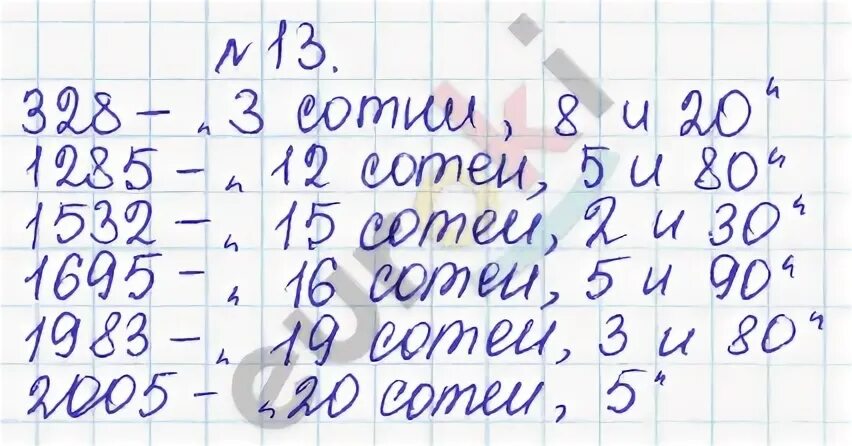 №13.
328 – „3 сотни, 8 и 20"
1285 – „12 сотен, 5 и 80"
1532 – „15 сотен, 2 и 30"
1695 – „16 сотен, 5 и 90"
1983 – „19 сотен, 3 и 80"
2005 – „20 сотен, 5"
euroki